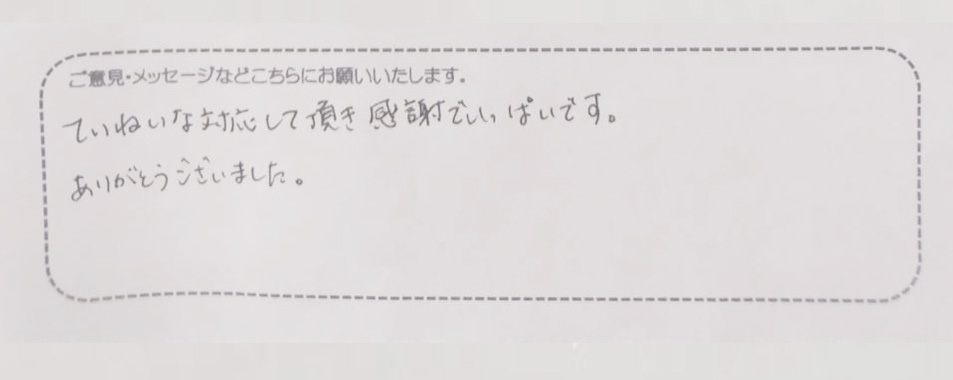 ご意見・メッセージなどこちらにお願いいたします。
ていねいな対応して頂き感謝でいっぱいです。
ありがとうございました。